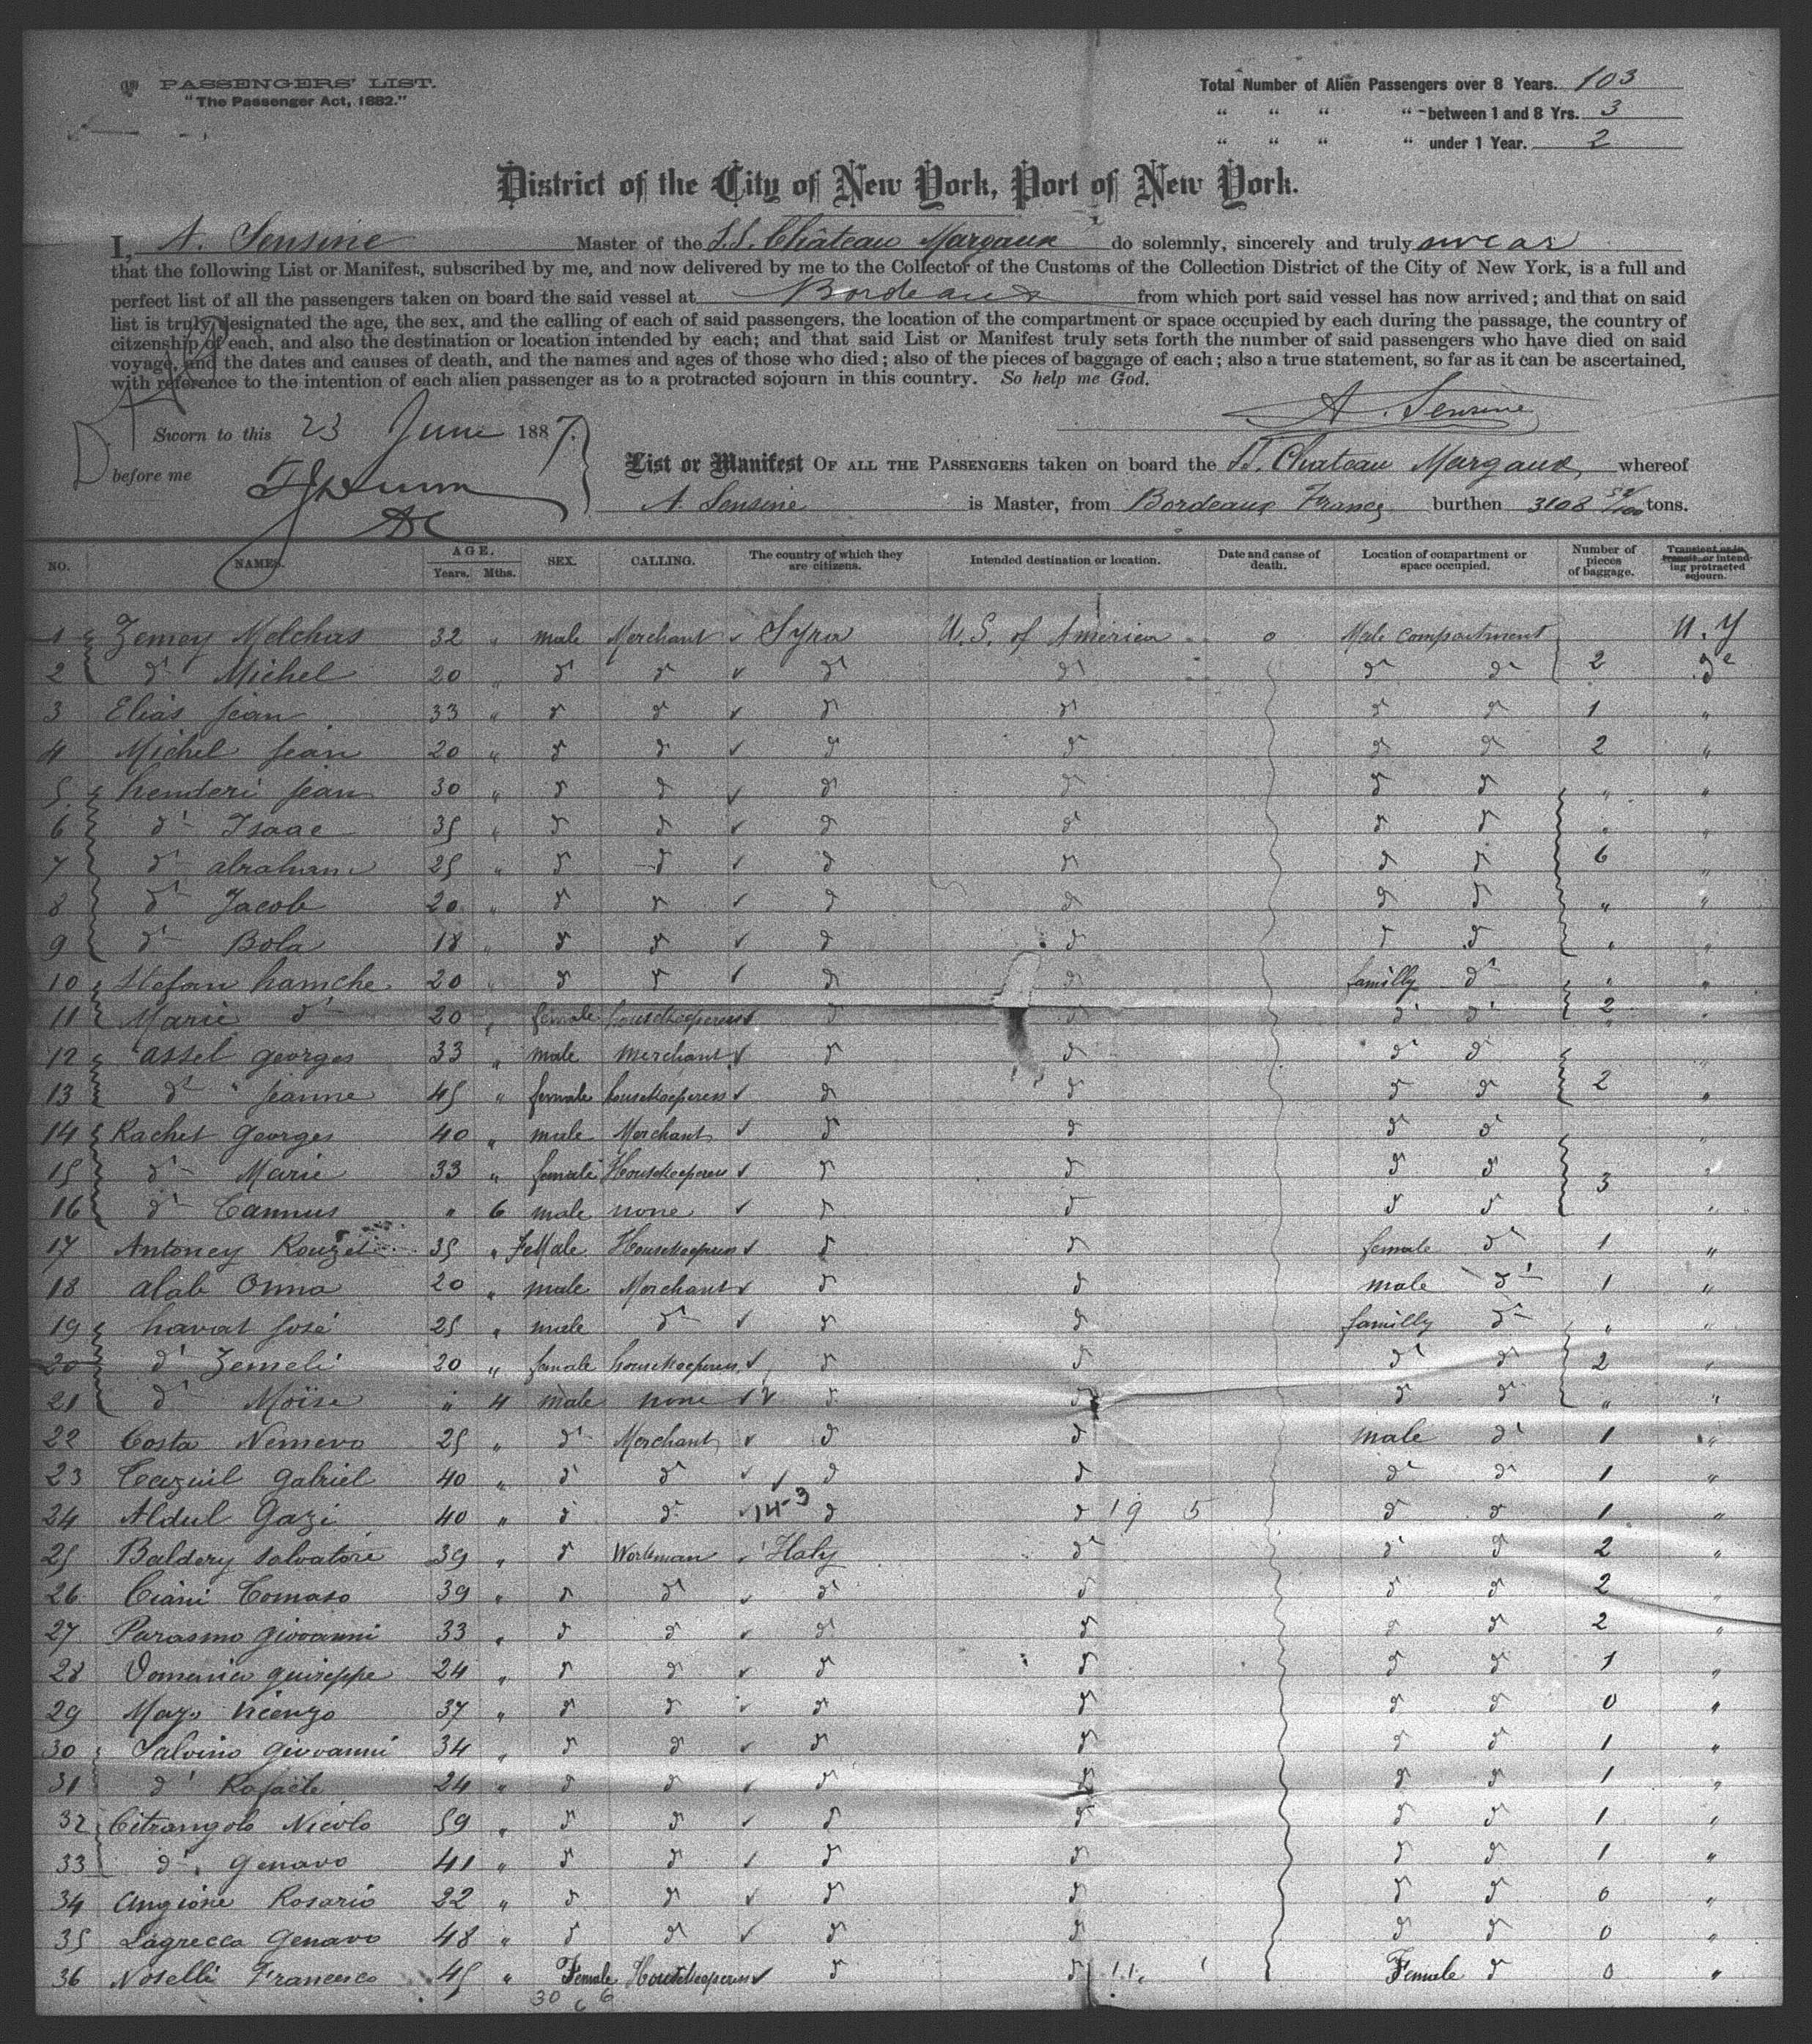 PASSENGERS' LIST.
"The Passenger Act, 1882."
Total Number of Alien Passengers over 8 Years. 103
" " " " between 1 and 8 Yrs. 3
" " " " under 1 Year. 2
District of the City of New York, Port of New York.
I, A. Sensine Master of the S.S. Château Margaux do solemnly, sincerely and truly swear
that the following List or Manifest, subscribed by me, and now delivered by me to the Collector of the Customs of the Collection District of the City of New York, is a full and
perfect list of all the passengers taken on board the said vessel at Bordeaux from which port said vessel has now arrived; and that on said
list is truly designated the age, the sex, and the calling of each of said passengers, the location of the compartment or space occupied by each during the passage, the country of
citzenship of each, and also the destination or location intended by each; and that said List or Manifest truly sets forth the number of said passengers who have died on said
voyage, and the dates and causes of death, and the names and ages of those who died; also of the pieces of baggage of each; also a true statement, so far as it can be ascertained,
with reference to the intention of each alien passenger as to a protracted sojourn in this country. So help me God.
A. Sensine
Sworn to this 23 June 1887.
before me
List or Manifest OF ALL THE PASSENGERS taken on board the SS. Chateau Margaux, whereof
A Sensine is Master, from Bordeaux France burthen 3108 tons.
NO. NAMES. AGE. Years. Mths. SEX. CALLING. The country of which they are citizens. Intended destination or location. Date and cause of death. Location of compartment or space occupied. Number of pieces of baggage. Transient or in transit or intending protracted sojourn.
1 Zemey Melchas 32 " male Merchant Syra U.S. of America o Male compartment N.Y
2 d° Michel 20 " d° d° d° d° d° d° 2 d°
3 Elias Jean 33 " d° d° d° d° d° d° 1 "
4 Michel Jean 20 " d° d° d° d° d° d° 2 "
5 henderi Jean 30 " d° d° d° d° d° d° " "
6 d° Isaac 35 " d° d° d° d° d° d° " "
7 d° abraham 25 " d° d° d° d° d° d° 6 "
8 d° Jacob 20 " d° d° d° d° d° d° " "
9 d° Bola 18 " d° d° d° d° d° d° " "
10 Stefan hamche 20 " d° d° d° d° familly d° " "
11 Marie d° 20 " female houseKeeperess d° d° d° d° 2 "
12 assel georges 33 " male merchant d° d° d° d° "
13 d° Jeanne 45 " female houseKeeperess d° d° d° d° 2 "
14 Rachet Georges 40 " male Merchant d° d° d° d° "
15 d° Marie 33 " female HouseKeeperess d° d° d° d° 3 "
16 d° Cannus " 6 male none d° d° d° d° "
17 Antoney Rouzet 35 " FeMale HouseKeeperess d° d° female d° 1 "
18 alab Onna 20 " male Merchant d° d° male d° 1 "
19 havat José 25 " male d° d° d° familly d° " "
20 d° Zemeli 20 " female houseKeeperess d° d° d° d° 2 "
21 d° Moïse " 4 male none d° d° d° d° " "
22 Costa Nemevo 25 " d° Merchant d° d° male d° 1 "
23 Cazuil Gabriel 40 " d° d° d° d° d° d° 1 "
24 Aldul Gazi 40 " d° d° 14-3 d° d° 19 5 d° d° 1 "
25 Baldery Salvatore 39 " d° Workman Italy d° d° d° 2 "
26 Ciani Tomaso 39 " d° d° d° d° d° d° 2 "
27 Parasmo giovanni 33 " d° d° d° d° d° d° 2 "
28 Domenica guiseppe 24 " d° d° d° d° d° d° 1 "
29 Mazo Vicenzo 37 " d° d° d° d° d° d° 0 "
30 Salvino giovanni 34 " d° d° d° d° d° d° 1 "
31 d° Rafaele 24 " d° d° d° d° d° d° 1 "
32 Citrangolo Nicolo 59 " d° d° d° d° d° d° 1 "
33 d° Genavo 41 " d° d° d° d° d° d° 1 "
34 Angione Rosario 22 " d° d° d° d° d° d° 0 "
35 Lagrecca Genavo 48 " d° d° d° d° d° d° 0 "
36 Noselli Francesco 45 " Female HouseKeeperess d° d° 11 Female d° 0 "
30 6 6